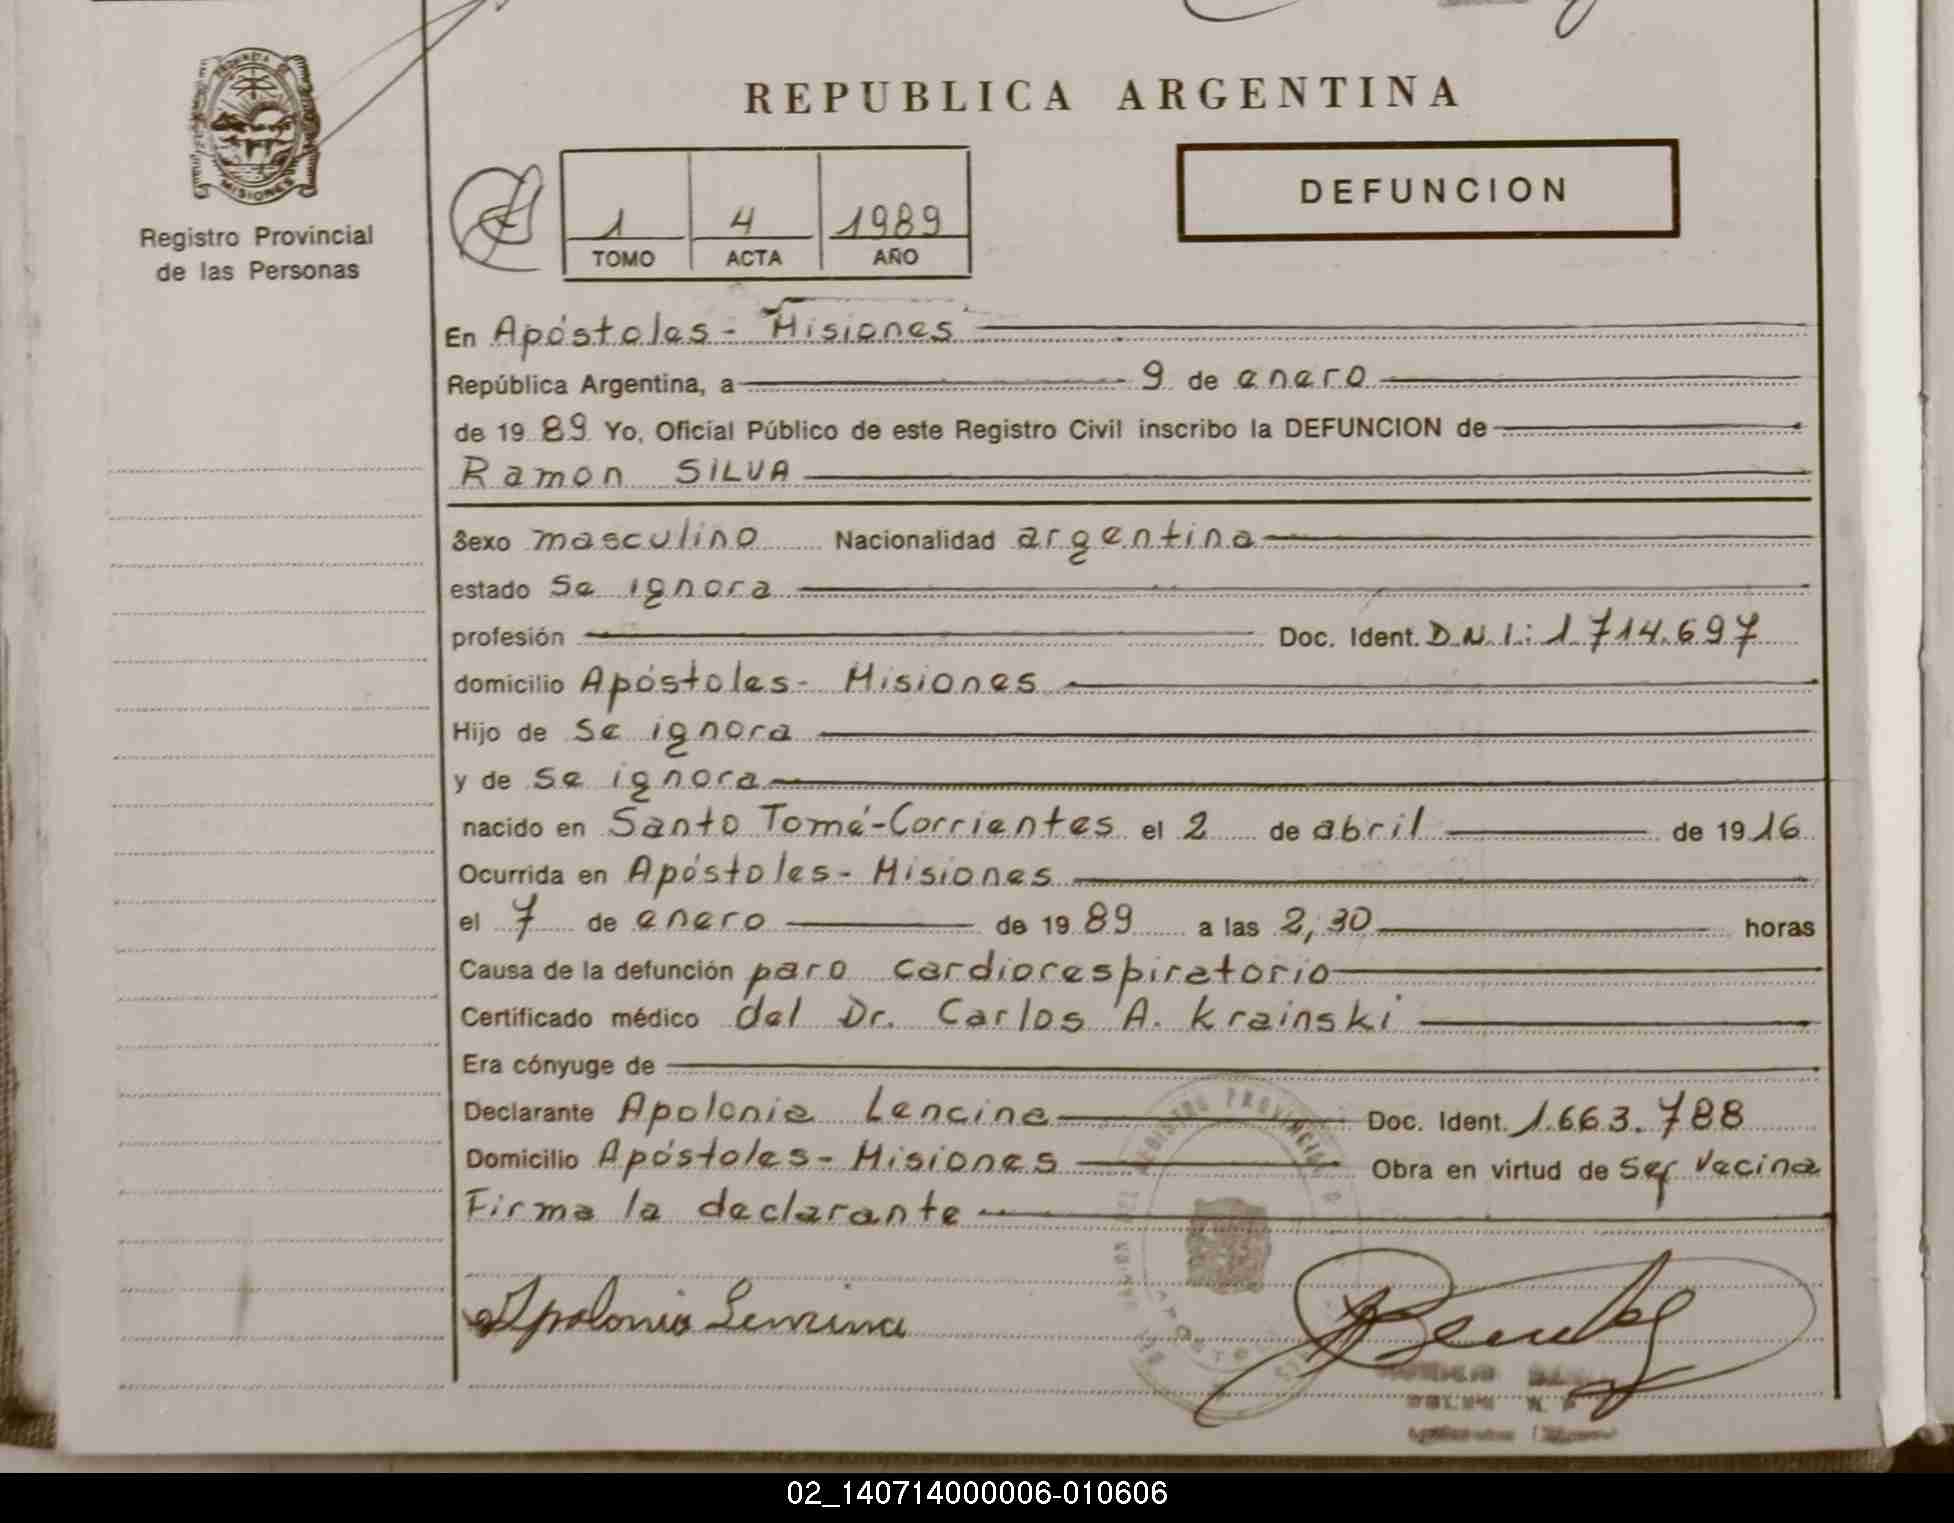 REPUBLICA ARGENTINA
PROVINCIA DE
MISIONES
Registro Provincial
de las Personas
1 4 1989
TOMO ACTA AÑO
DEFUNCION
En Apóstoles - Misiones
República Argentina, a 9 de enero
de 1989 Yo, Oficial Público de este Registro Civil inscribo la DEFUNCION de
Ramon SILVA
Sexo masculino Nacionalidad argentina
estado se ignora
profesión Doc. Ident. D.N.I.: 1.714.697
domicilio Apóstoles - Misiones
Hijo de se ignora
y de se ignora
nacido en Santo Tomé-Corrientes el 2 de abril de 1916
Ocurrida en Apóstoles - Misiones
el 7 de enero de 1989 a las 2,30 horas
Causa de la defunción paro cardiorespiratorio
Certificado médico del Dr. Carlos A. Krainski
Era cónyuge de
Declarante Apolonia Lencina Doc. Ident. 1.663.788
Domicilio Apóstoles - Misiones Obra en virtud de ser vecina
Firma la declarante
REGISTRO PROVINCIAL
Apolonia Lencina
02_140714000006-010606